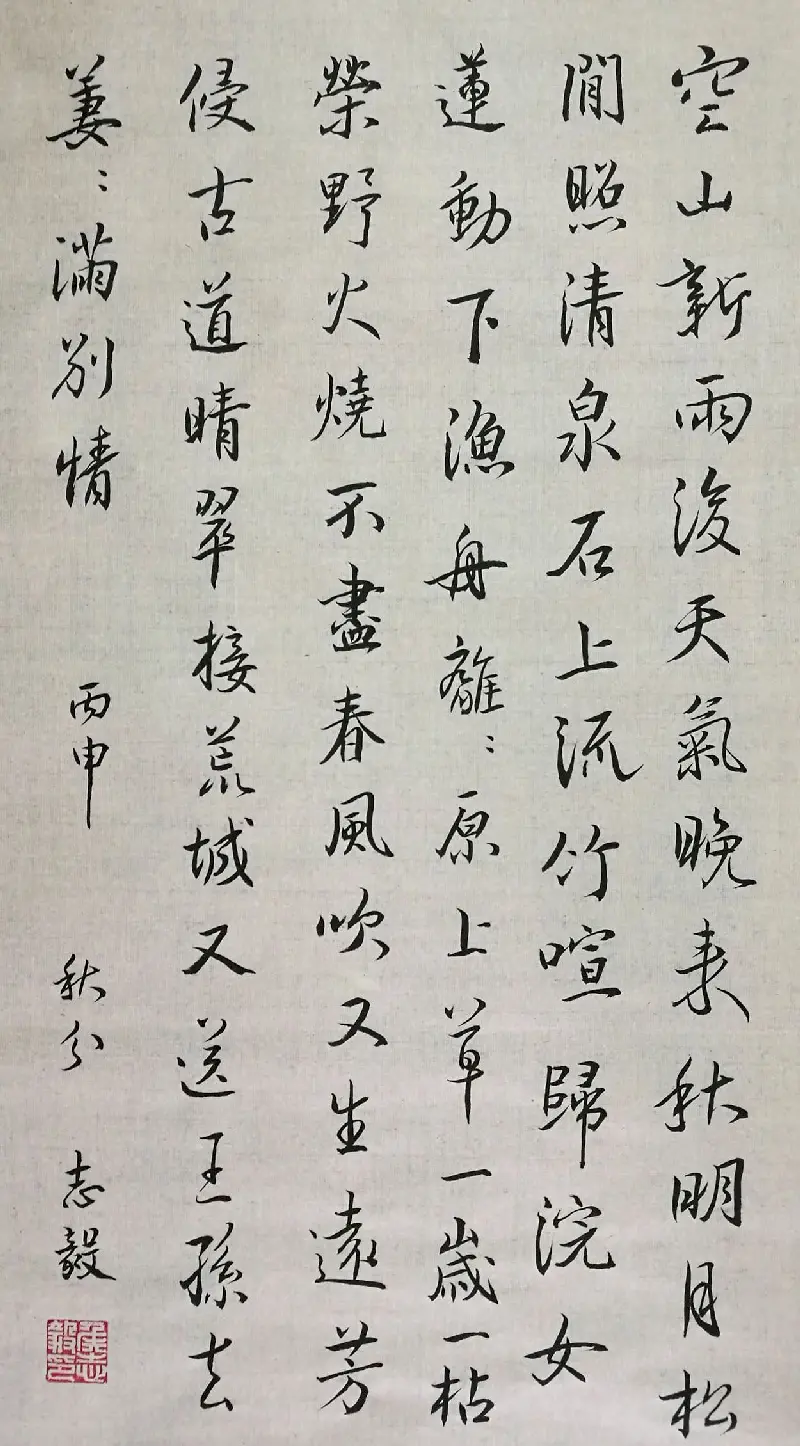 空山新雨後天氣晚來秋明月松
間照清泉石上流竹喧歸浣女
蓮動下漁舟離〻原上草一歲一枯
榮野火燒不盡春風吹又生遠芳
侵古道晴翠接荒城又送王孫去
萋〻滿別情
丙申 秋分 志毅